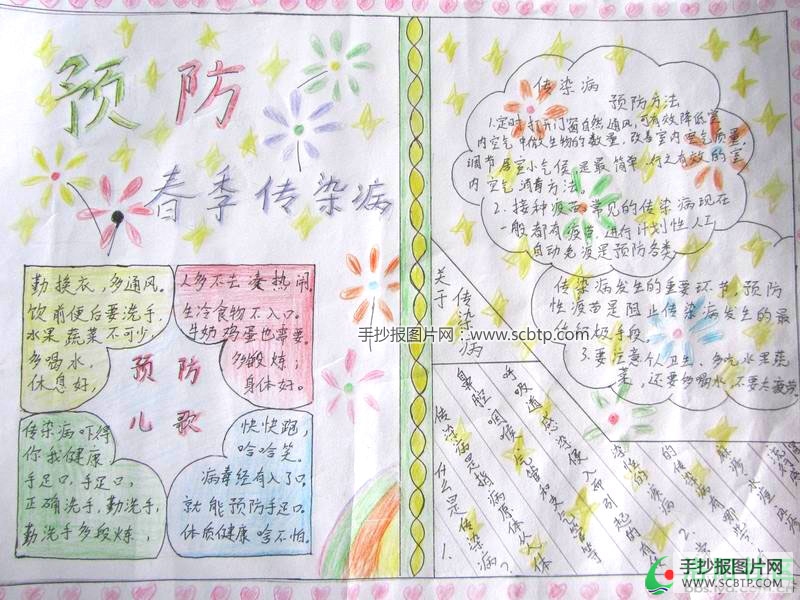 预防
春季传染病
勤换衣，多通风。
饮前便后要洗手，
水果蔬菜不可少，
多喝水，
休息好，
人多不去凑热闹。
生冷食物不入口。
牛奶鸡蛋也需要。
多锻炼；
身体好。
预防
儿歌
传染病吓得
你我健康
手足口，手足口，
正确洗手，勤洗手，
勤洗手多锻炼，
快快跑，
哈哈笑。
病毒经有入了口
就能预防手足口。
体质健康啥不怕。
传染病
预防方法
1.定时打开门窗自然通风，可有效降低室
内空气中微生物的数量，改善室内空气质量，
调节居室小气候，是最简单、行之有效的室
内空气消毒方法。
2.接种疫苗，常见的传染病现在
一般都有疫苗，进行计划性人工
自动免疫是预防各类
传染病发生的重要环节，预防
性疫苗是阻止传染病发生的最
积极手段。
3.要注意个人卫生、多吃水果蔬
菜，还要多喝水，不要太疲劳。
关于
传染病
1.什么是传染病？
传染病是指病原体从人体
鼻腔咽喉、气管和支气管等
呼吸道感染侵入而引起的有
传染性的疾病
2.
手抄报图片网：www.scbtp.com
手抄报图片网
WWW.SCBTP.COM